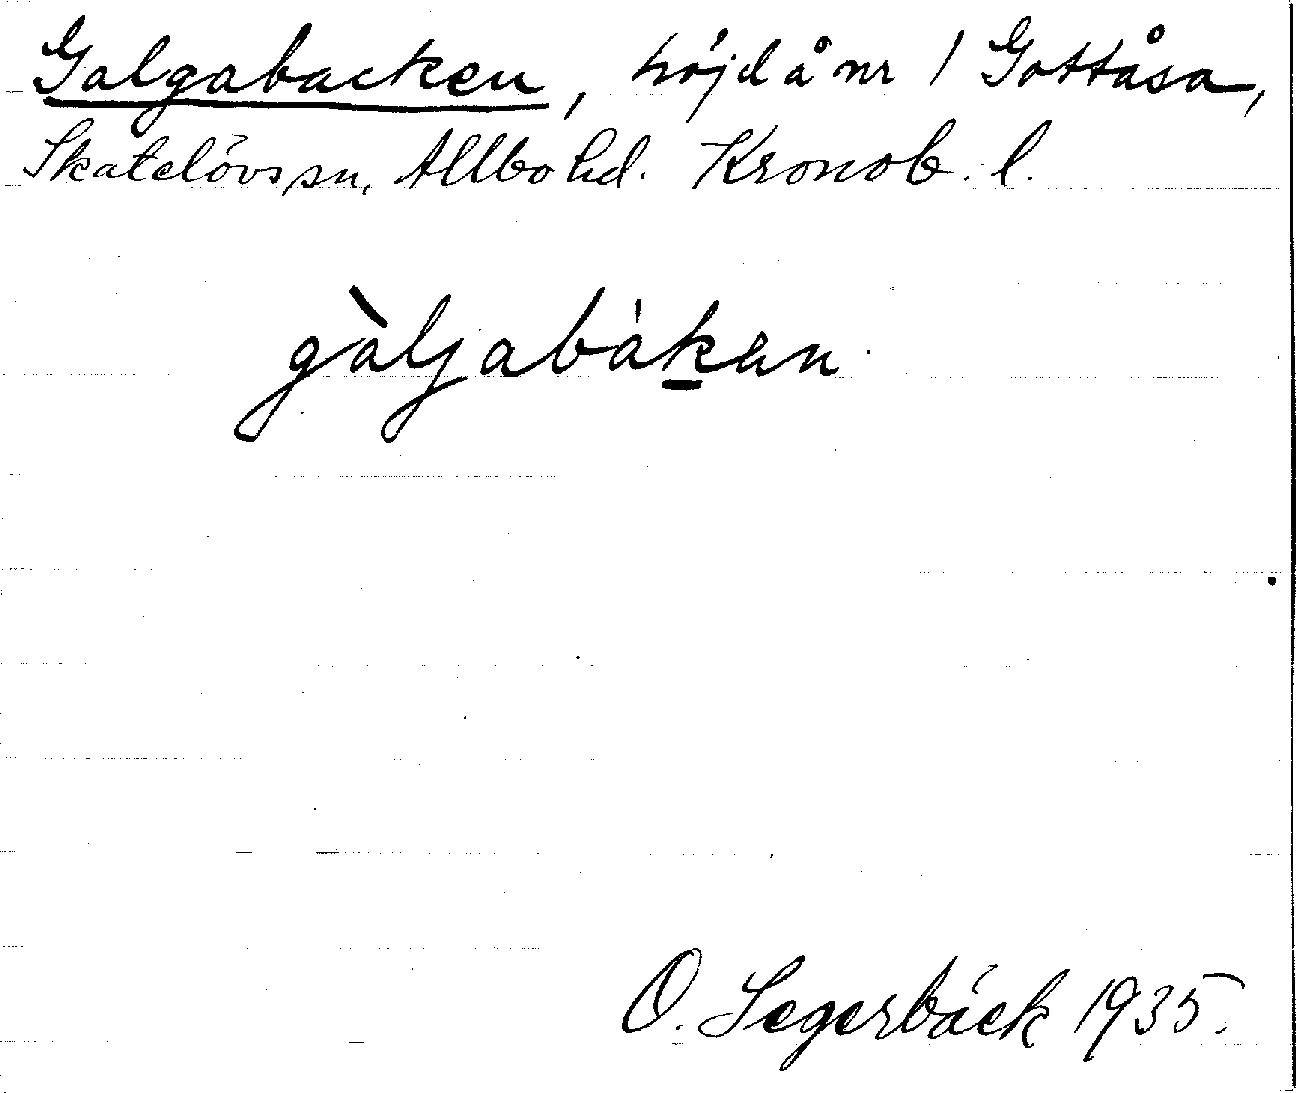 Galgabacken, höjd å nr 1 Gottåsa,
Skatelövs sn, Allbo hd. Kronob. l.
gàljabákan
O. Segerbäck 1935.